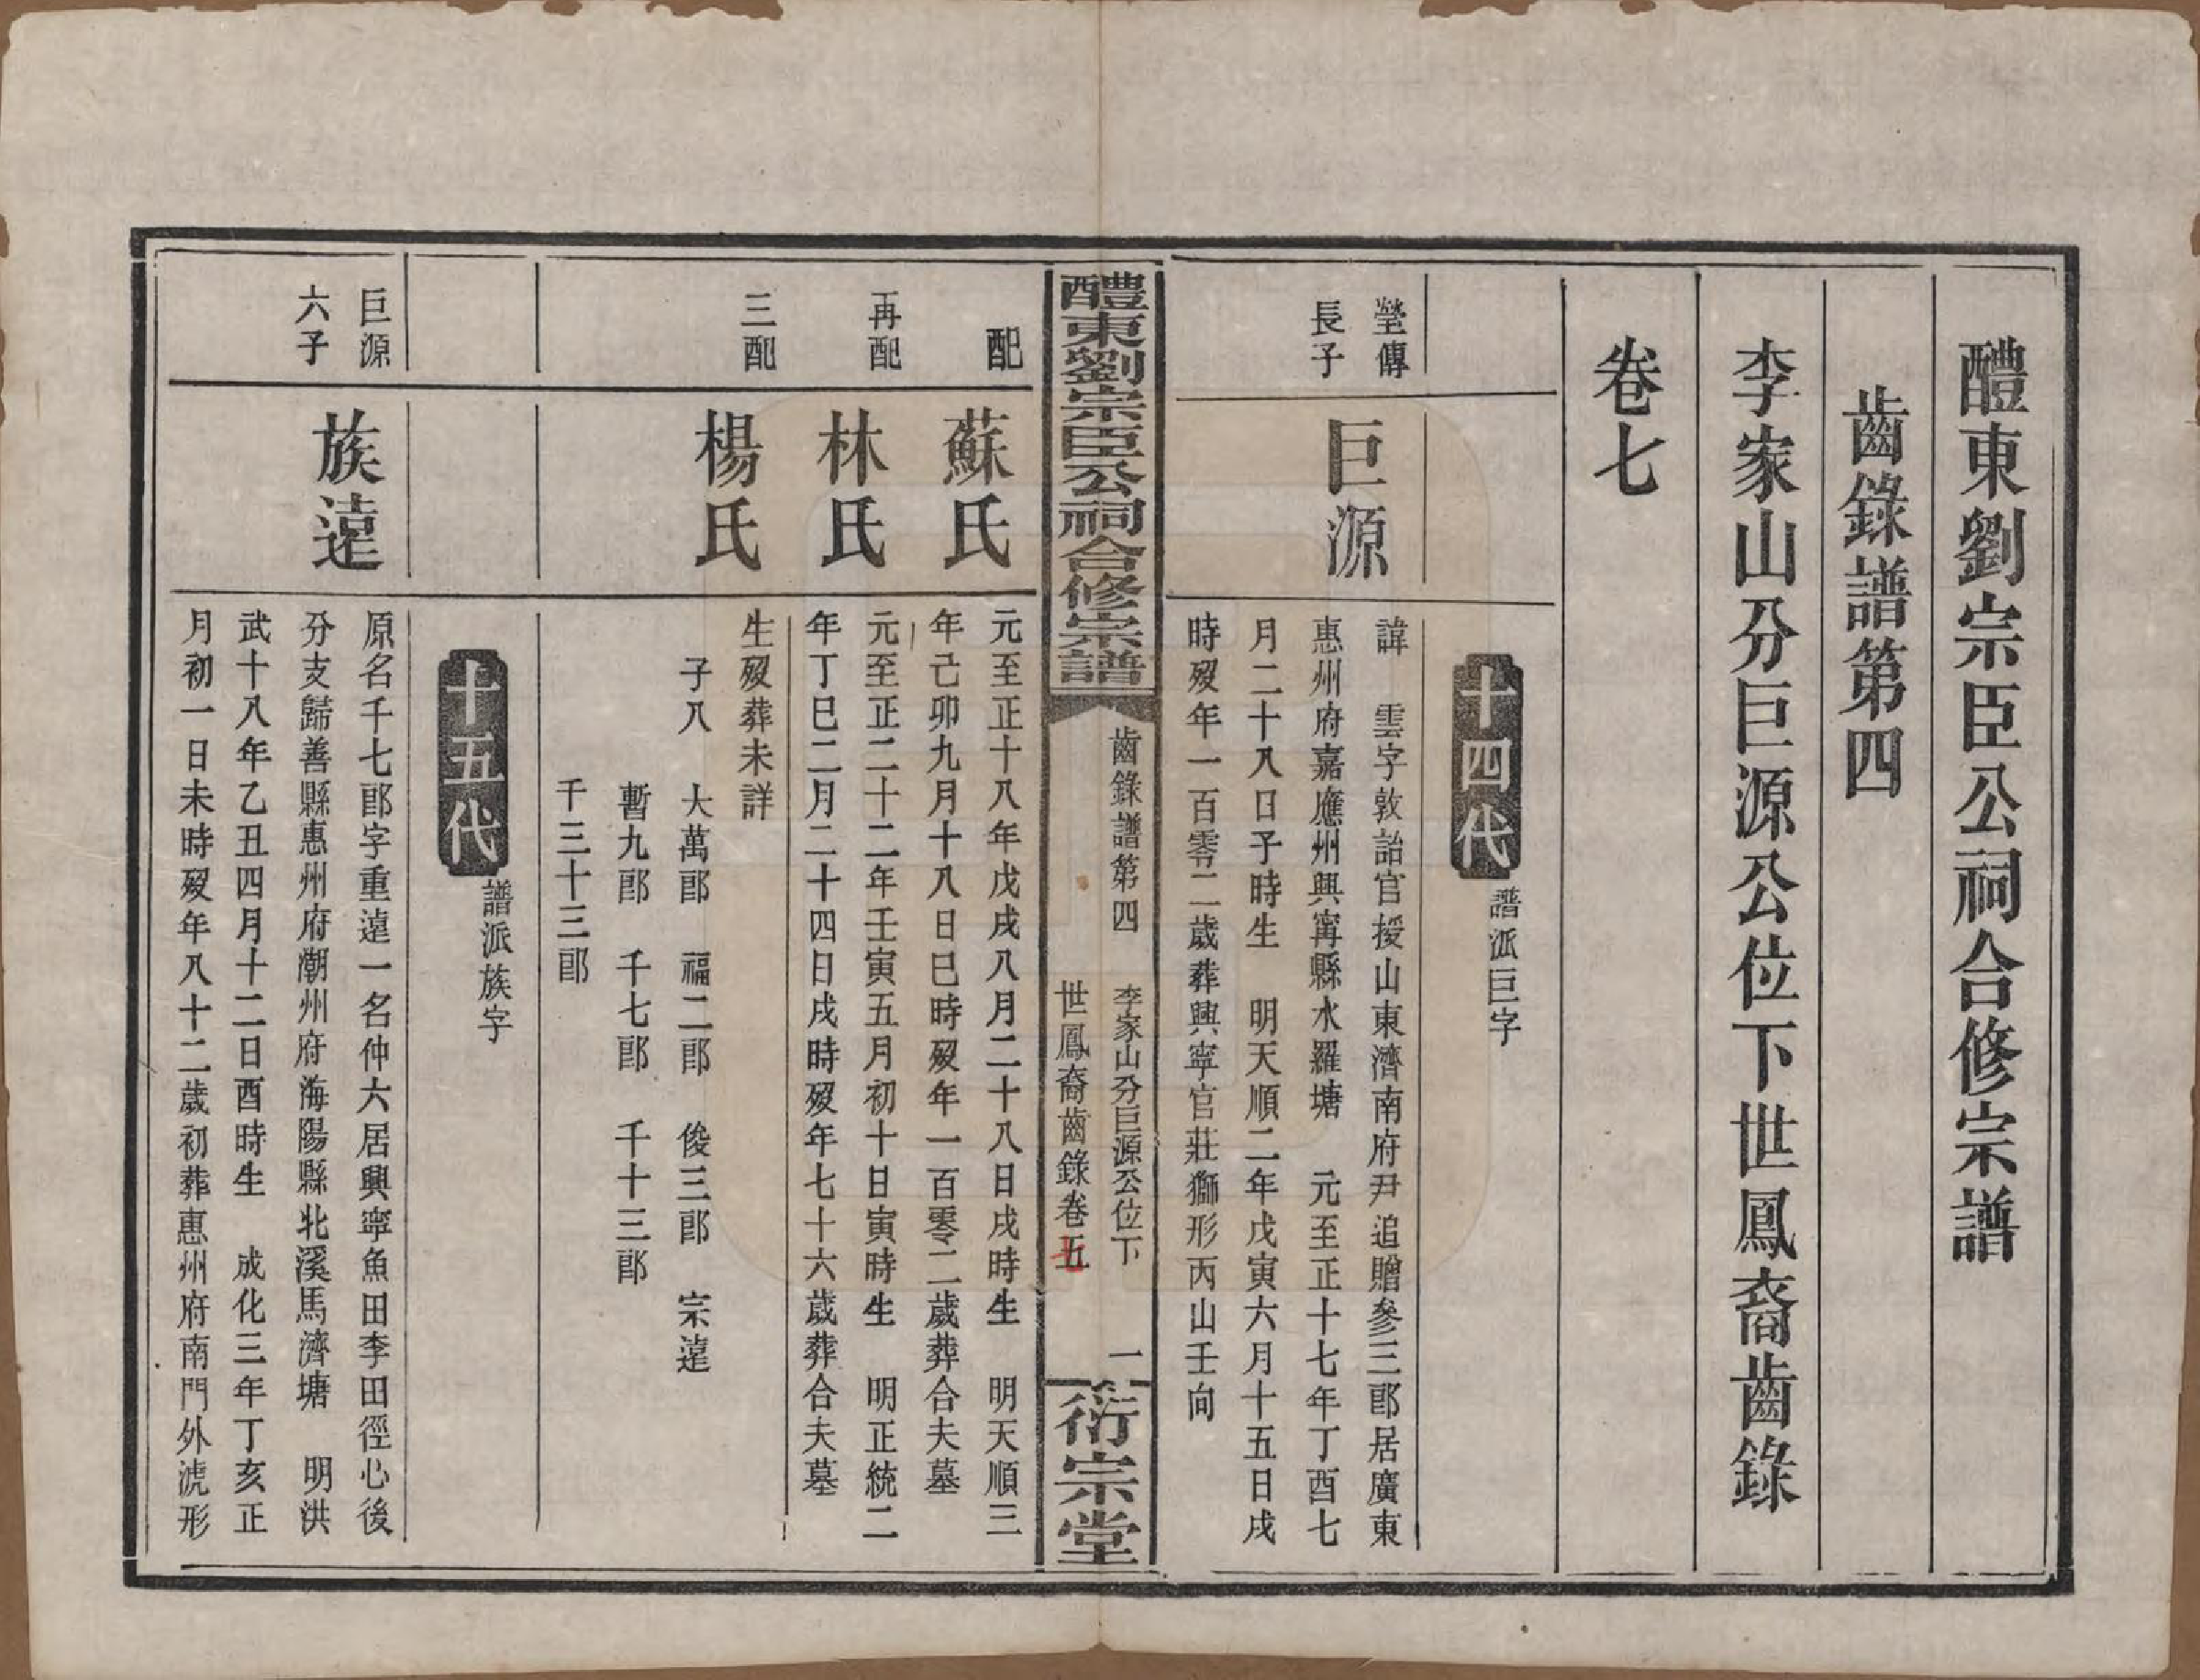 醴東劉宗臣公祠合修宗譜
齒錄譜第四
李家山分巨源公位下世鳳裔齒錄
卷七
十四代
譜派巨字
瑩傳
長子
巨源
諱 雲字敦詒官授山東濟南府尹追贈參三郎居廣東
惠州府嘉應州興甯縣水羅塘 元至正十七年丁酉七
月二十八日子時生 明天順二年戊寅六月十五日戌
時歿年一百零二歲葬興寧官莊獅形丙山壬向
醴東劉宗臣公祠合修宗譜
齒錄譜第四
李家山分巨源公位下
世鳳裔齒錄卷五
七
一
衍宗堂
配
蘇氏
元至正十八年戊戌八月二十八日戌時生 明天順三
年己卯九月十八日巳時歿年一百零二歲葬合夫墓
再配
林氏
元至正二十二年壬寅五月初十日寅時生 明正統二
年丁巳二月二十四日戌時歿年七十六歲葬合夫墓
三配
楊氏
生歿葬未詳
子八 大萬郎 福二郎 俊三郎 宗遠
暫九郎 千七郎 千十三郎
千三十三郎
十五代
譜派族字
巨源
六子
族遠
原名千七郎字重遠一名仲六居興寧魚田李田徑心後
分支歸善縣惠州府潮州府海陽縣北溪馬濟塘 明洪
武十八年乙丑四月十二日酉時生 成化三年丁亥正
月初一日未時歿年八十二歲初葬惠州府南門外淲形